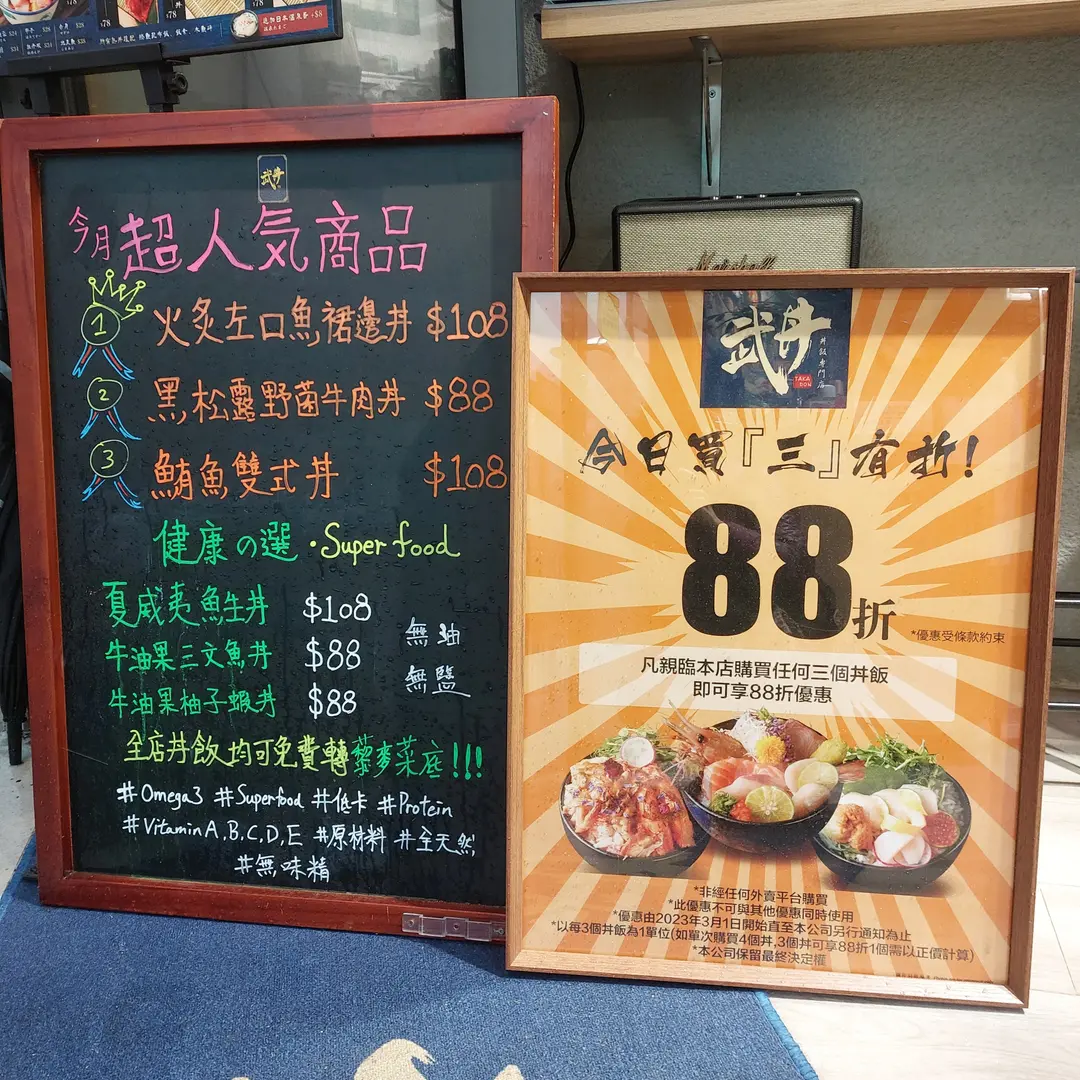 $78
$78
$78
+$8
武丼
今月超人気商品
1 火炙左口魚裙邊丼 $108
2 黑松露野菌牛肉丼 $88
3 鮪魚雙式丼 $108
健康の選・Super food
夏威夷魚生丼 $108
牛油果三文魚丼 $88
牛油果柚子蝦丼 $88
無油
無鹽
全店丼飯均可免費轉藜麥菜底!!!
#Omega3 #Superfood #低卡 #Protein
#Vitamin A,B,C,D,E #原材料 #全天然
#無味精
Marshall
武丼
丼飯專門店
TAKA
DON
今日買『三』有折!
88折
*優惠受條款約束
凡親臨本店購買任何三個丼飯
即可享88折優惠
*非經任何外賣平台購買
*此優惠不可與其他優惠同時使用
*優惠由2023年3月1日開始直至本公司另行通知為止
*以每3個丼飯為1單位(如單次購買4個丼,3個丼可享88折1個需以正價計算)
*本公司保留最終決定權